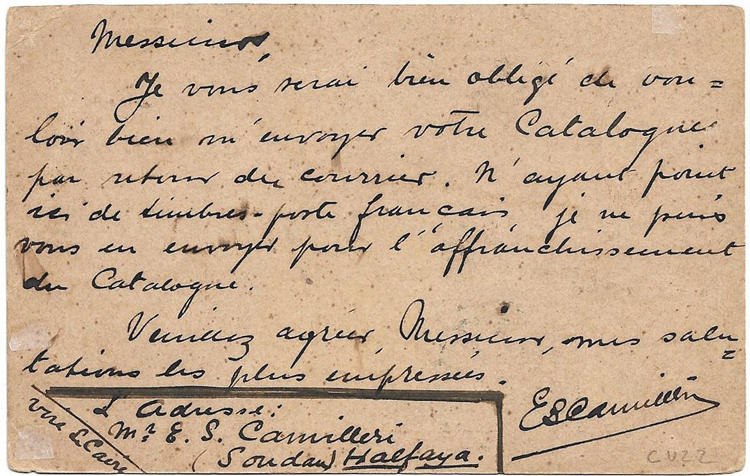 Messieurs,
Je vous serai bien obligé de vou=
loir bien m'envoyer votre Catalogue
par retour du courrier. N'ayant point
ici de timbres-poste français je ne puis
vous en envoyer pour l'affranchissement
du Catalogue.
Veuillez agréer Messieurs, mes salu=
tations les plus empressées.
ESCamilleri
L'Adresse:
Mr E. S. Camilleri
(Soudan) Halfaya.
voie Le Caire
CU22